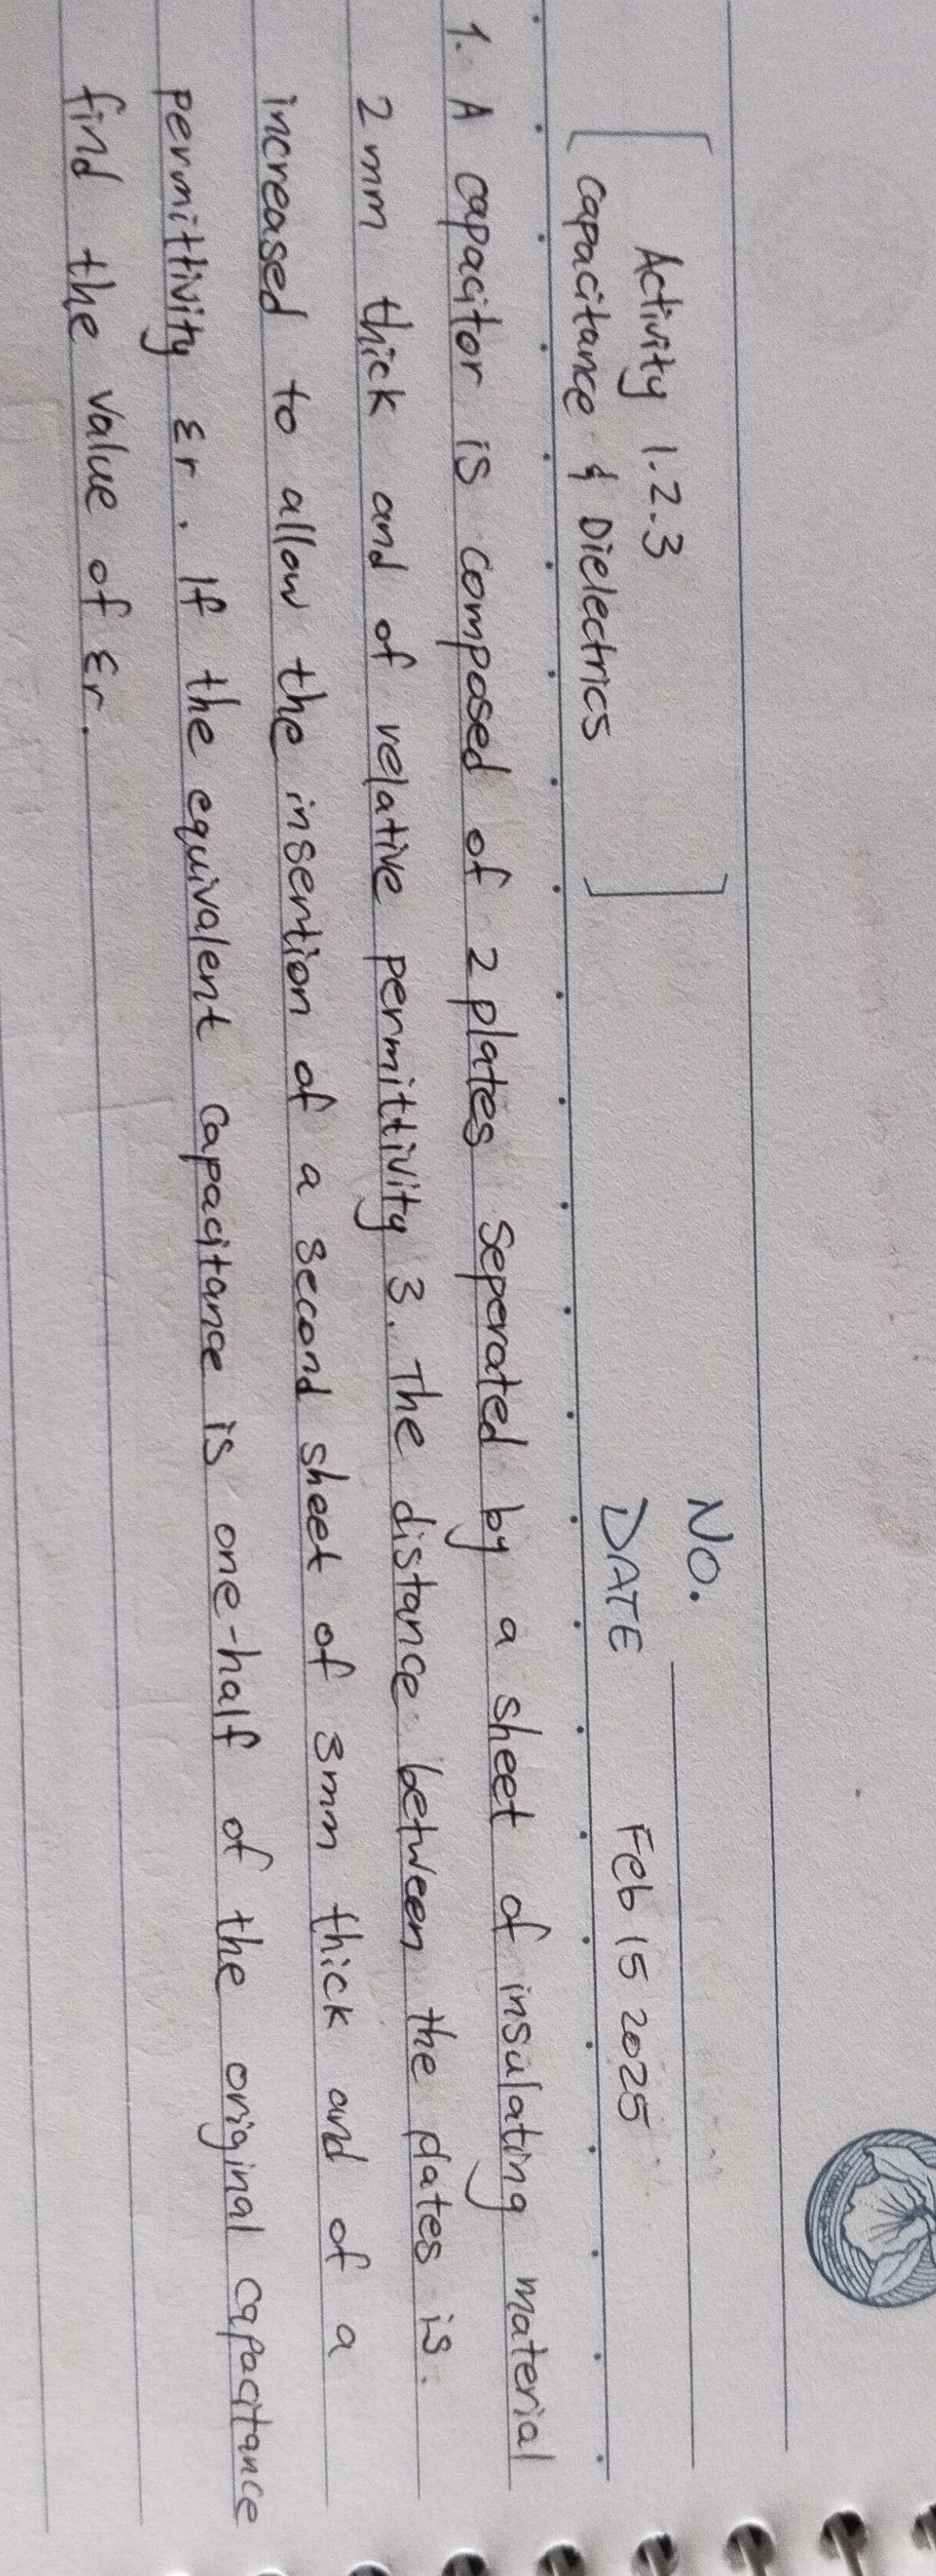 NO.
Activity 1.2.3
DATE Feb 15 2025
Capacitance & Dielectrics
1. A capacitor is composed of 2 plates seperated by a sheet of insulating material
2 mm thick and of relative permittivity 3. The distance between the plates is
increased to allow the insertion of a second sheet of 3mm thick and of a
permittivity εr. If the equivalent capacitance is one-half of the original capacitance
find the value of εr.